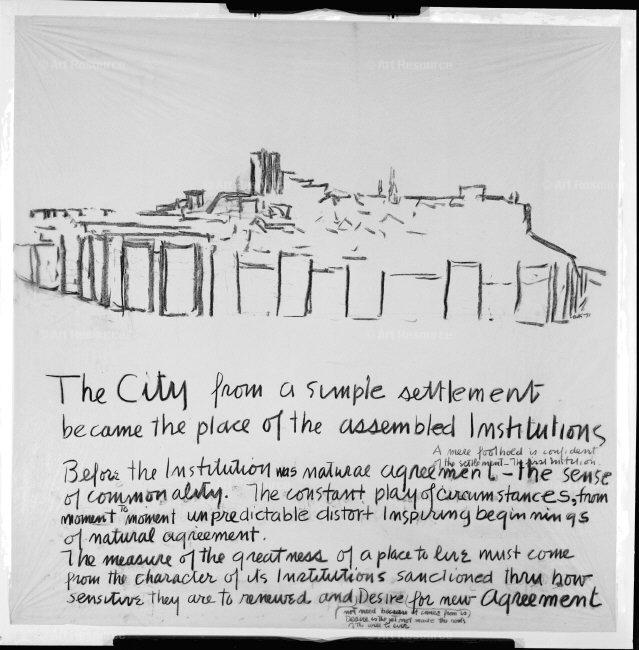 The City from a simple settlement
became the place of the assembled Institutions
A mere foothold is confident
of the settlement - The first institution.
Before the Institution was natural agreement - The sense
of commonality. The constant play of circumstances, from
moment to moment unpredictable distort Inspiring beginnings
of natural agreement.
The measure of the greatness of a place to live must come
from the character of its Institutions sanctioned thru how
sensitive they are to renewed and Desire for new Agreement
not need because it comes from is
Desire is the yet not made the roots
of the will to
© Art Resource
© Art Resource
© Art Resource
© Art Resource
© Art Resource
© Art Resource
© Art Resource
© Art Resource